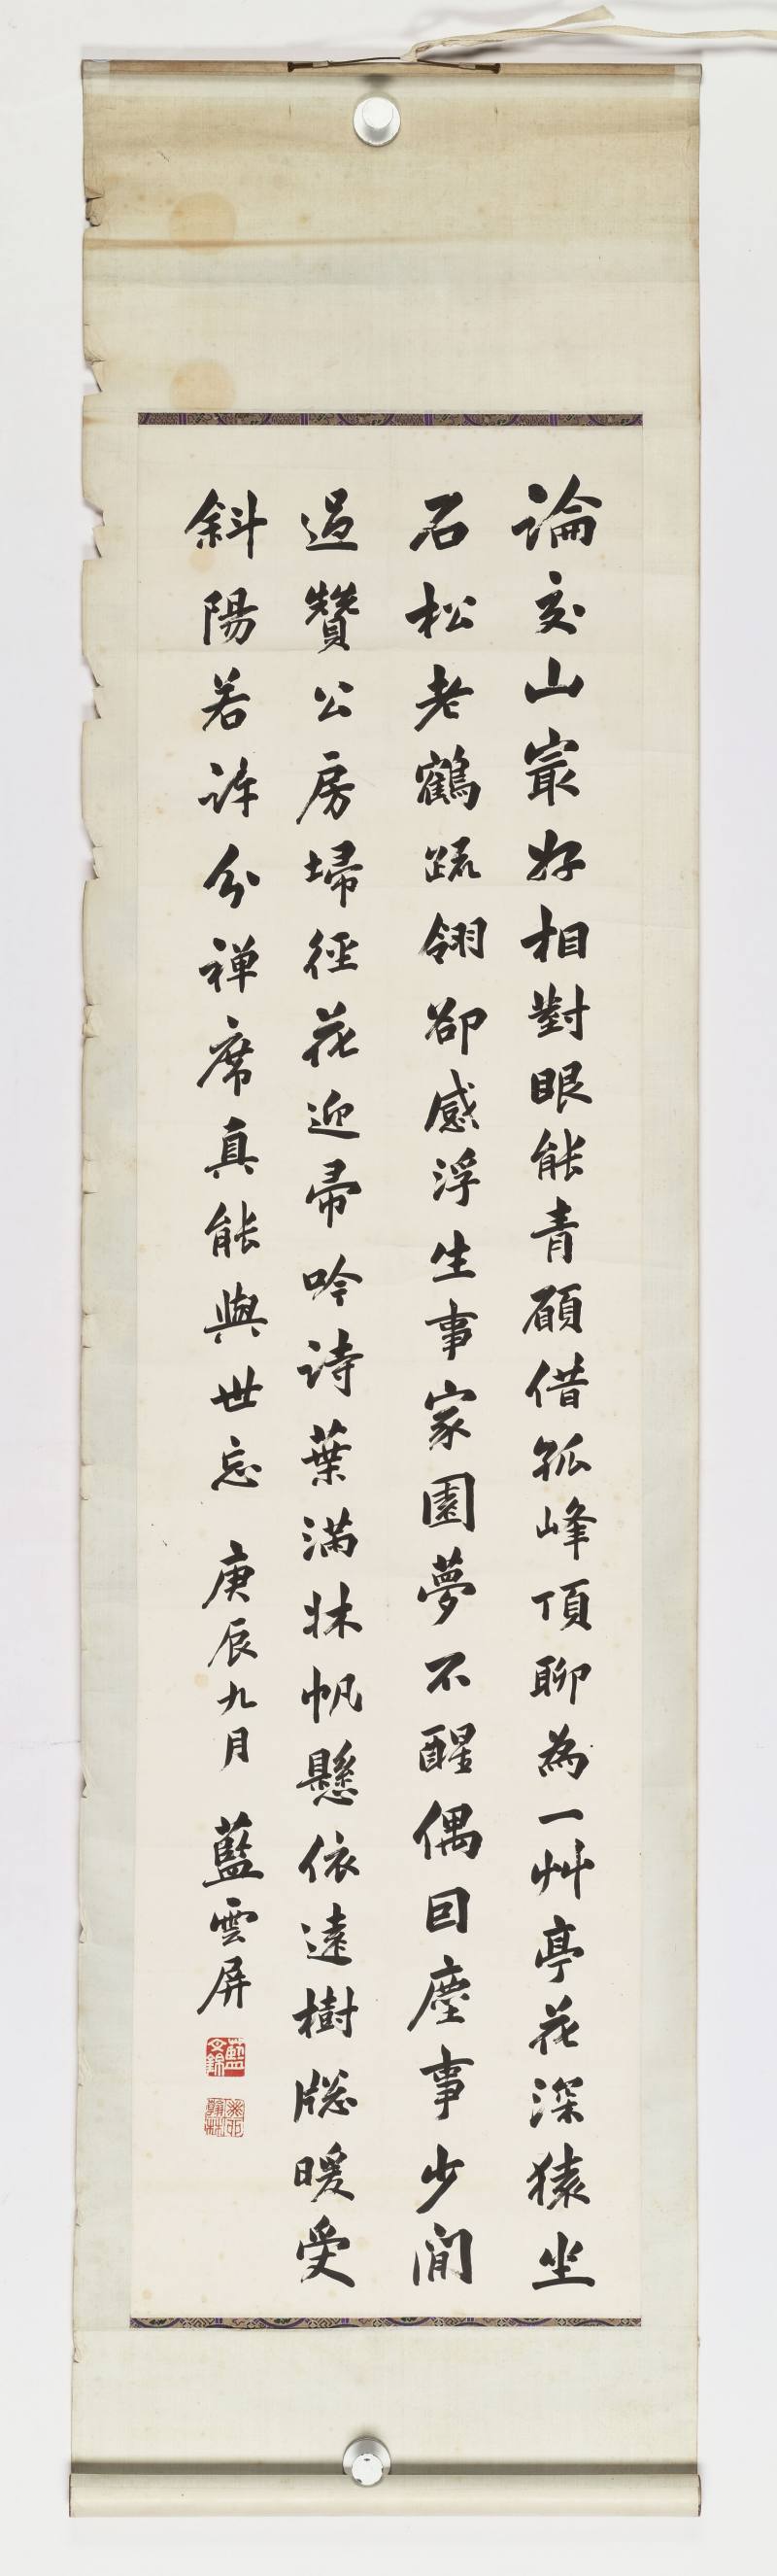 論交山寂好相對眼能青願借孤峰頂聊為一艸亭花深猿坐
石松老鶴疏翎卻感浮生事家園夢不醒偶回塵事少閒
過贊公房埽徑花迎帚吟詩葉滿牀帆懸依遠樹牕暖受
斜陽若許分禅席真能與世忘 庚辰九月 藍雲屏
藍文錦